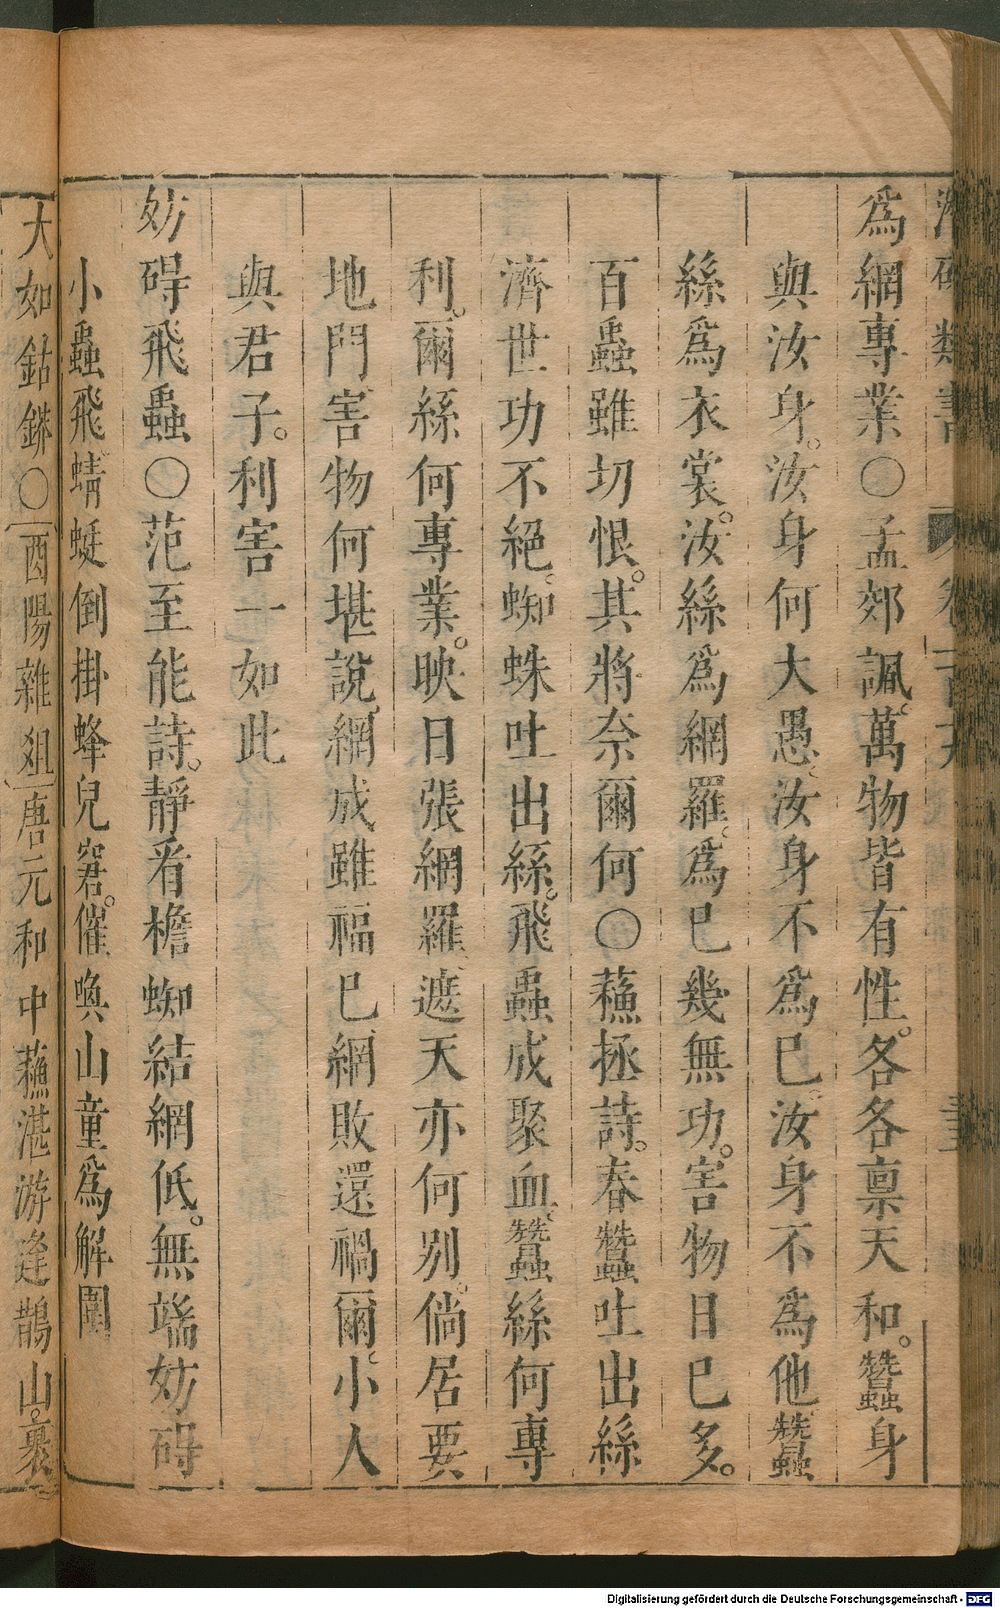 爲網專業○孟郊諷萬物皆有性。各各禀天和。蠶身
與汝身。汝身何大愚、汝身不爲巳。汝身不爲他蠶
絲爲衣裳。汝絲爲網羅、爲巳幾無功。害物日巳多。
百蟲雖切恨。其將奈爾何○蘓拯詩。春蠶吐出絲
濟世功不絕、蜘蛛吐出絲。飛蟲成聚血。蠶絲何專
利。爾絲何專業。映日張網羅、遮天亦何别。倘居要
地門害物何堪說。網成雖福巳、網敗還禍爾。小人
與君子。利害一如此
妨碍飛蟲○范至能詩。靜看檐蜘結網低。無端妨碍
小蟲飛、蜻蜓倒掛蜂兒窘。催喚山童爲解圍
大如鈷鏻○酉陽雜俎唐元和中蘓湛游逢鵲山。裹
Digitalisierung gefördert durch die Deutsche Forschungsgemeinschaft - DFG